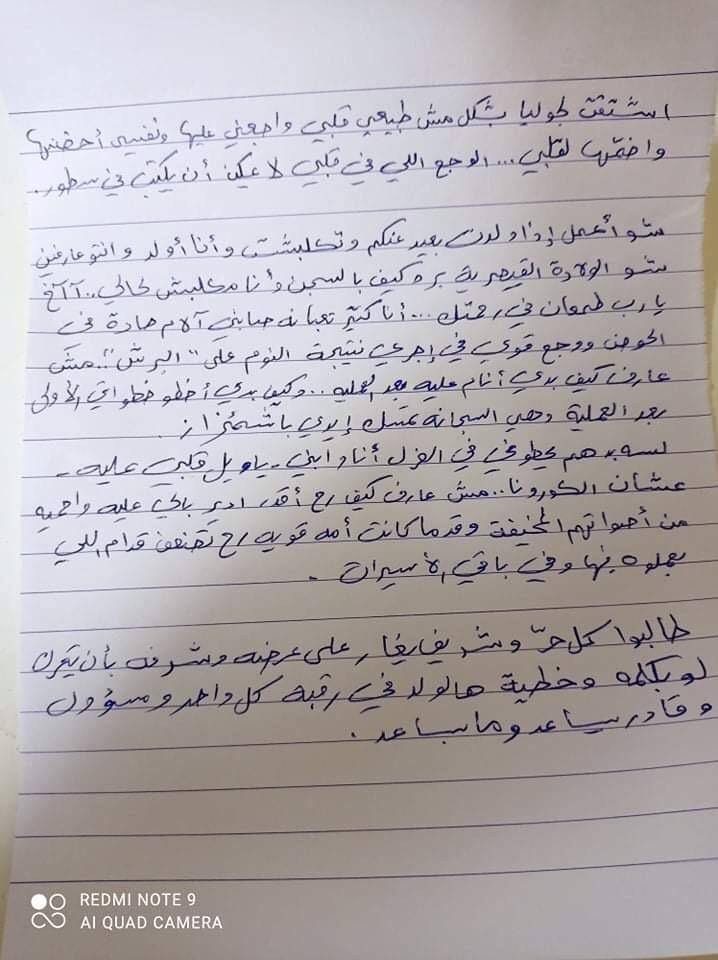 اشتقت لجوليا بشكل مش طبيعي قلبي واجعني عليها ونفسي أحضنها
واضمّها لقلبي... الوجع اللي في قلبي لا يمكن أن يكتب في سطور.
شو أعمل إذا ولدت بعيد عنكم وتكلبشت وأنا أولد وانتو عارفين
شو الولادة القيصرية بره كيف بالسجن وأنا مكلبش لحالي.. آآخ
يا رب طمعان في رحمتك... أنا كثير تعبانه صابني آلام حادة في
الحوض ووجع قوي في إجري نتيجة النوم على "البرش".. مش
عارف كيف بدي أنام عليه بعد العملية.. وكيف بدي أخطو خطواتي الأولى
بعد العملية وهي السجانة تمسك إيدي باشمئزاز.
لسه بدهم يحطوني في العزل أنا وابني - يا ويل قلبي عليه -
عشان الكورونا.. مش عارف كيف رح أقدر ادير بالي عليه واحميه
من أصواتهم المخيفة وقد ما كانت أمه قويه رح تضعف قدام اللي
بعملوه فيها وفي باقي الأسيرات -
طالبوا كل حرّ وشريف يغار على عرضه وشرفه بأن يتحرك
لو بكلمه وخطية هالولد في رقبة كل واحد ومسؤول
وقادر يساعد وما بساعد.
REDMI NOTE 9
AI QUAD CAMERA